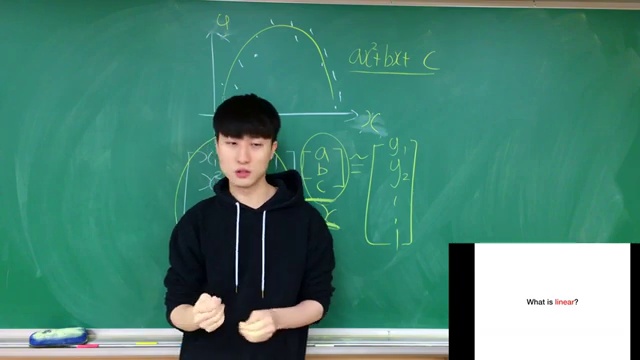 y
ax²+bx+ c
x
a
b
c
≈
y₁
y₂
x
What is linear?